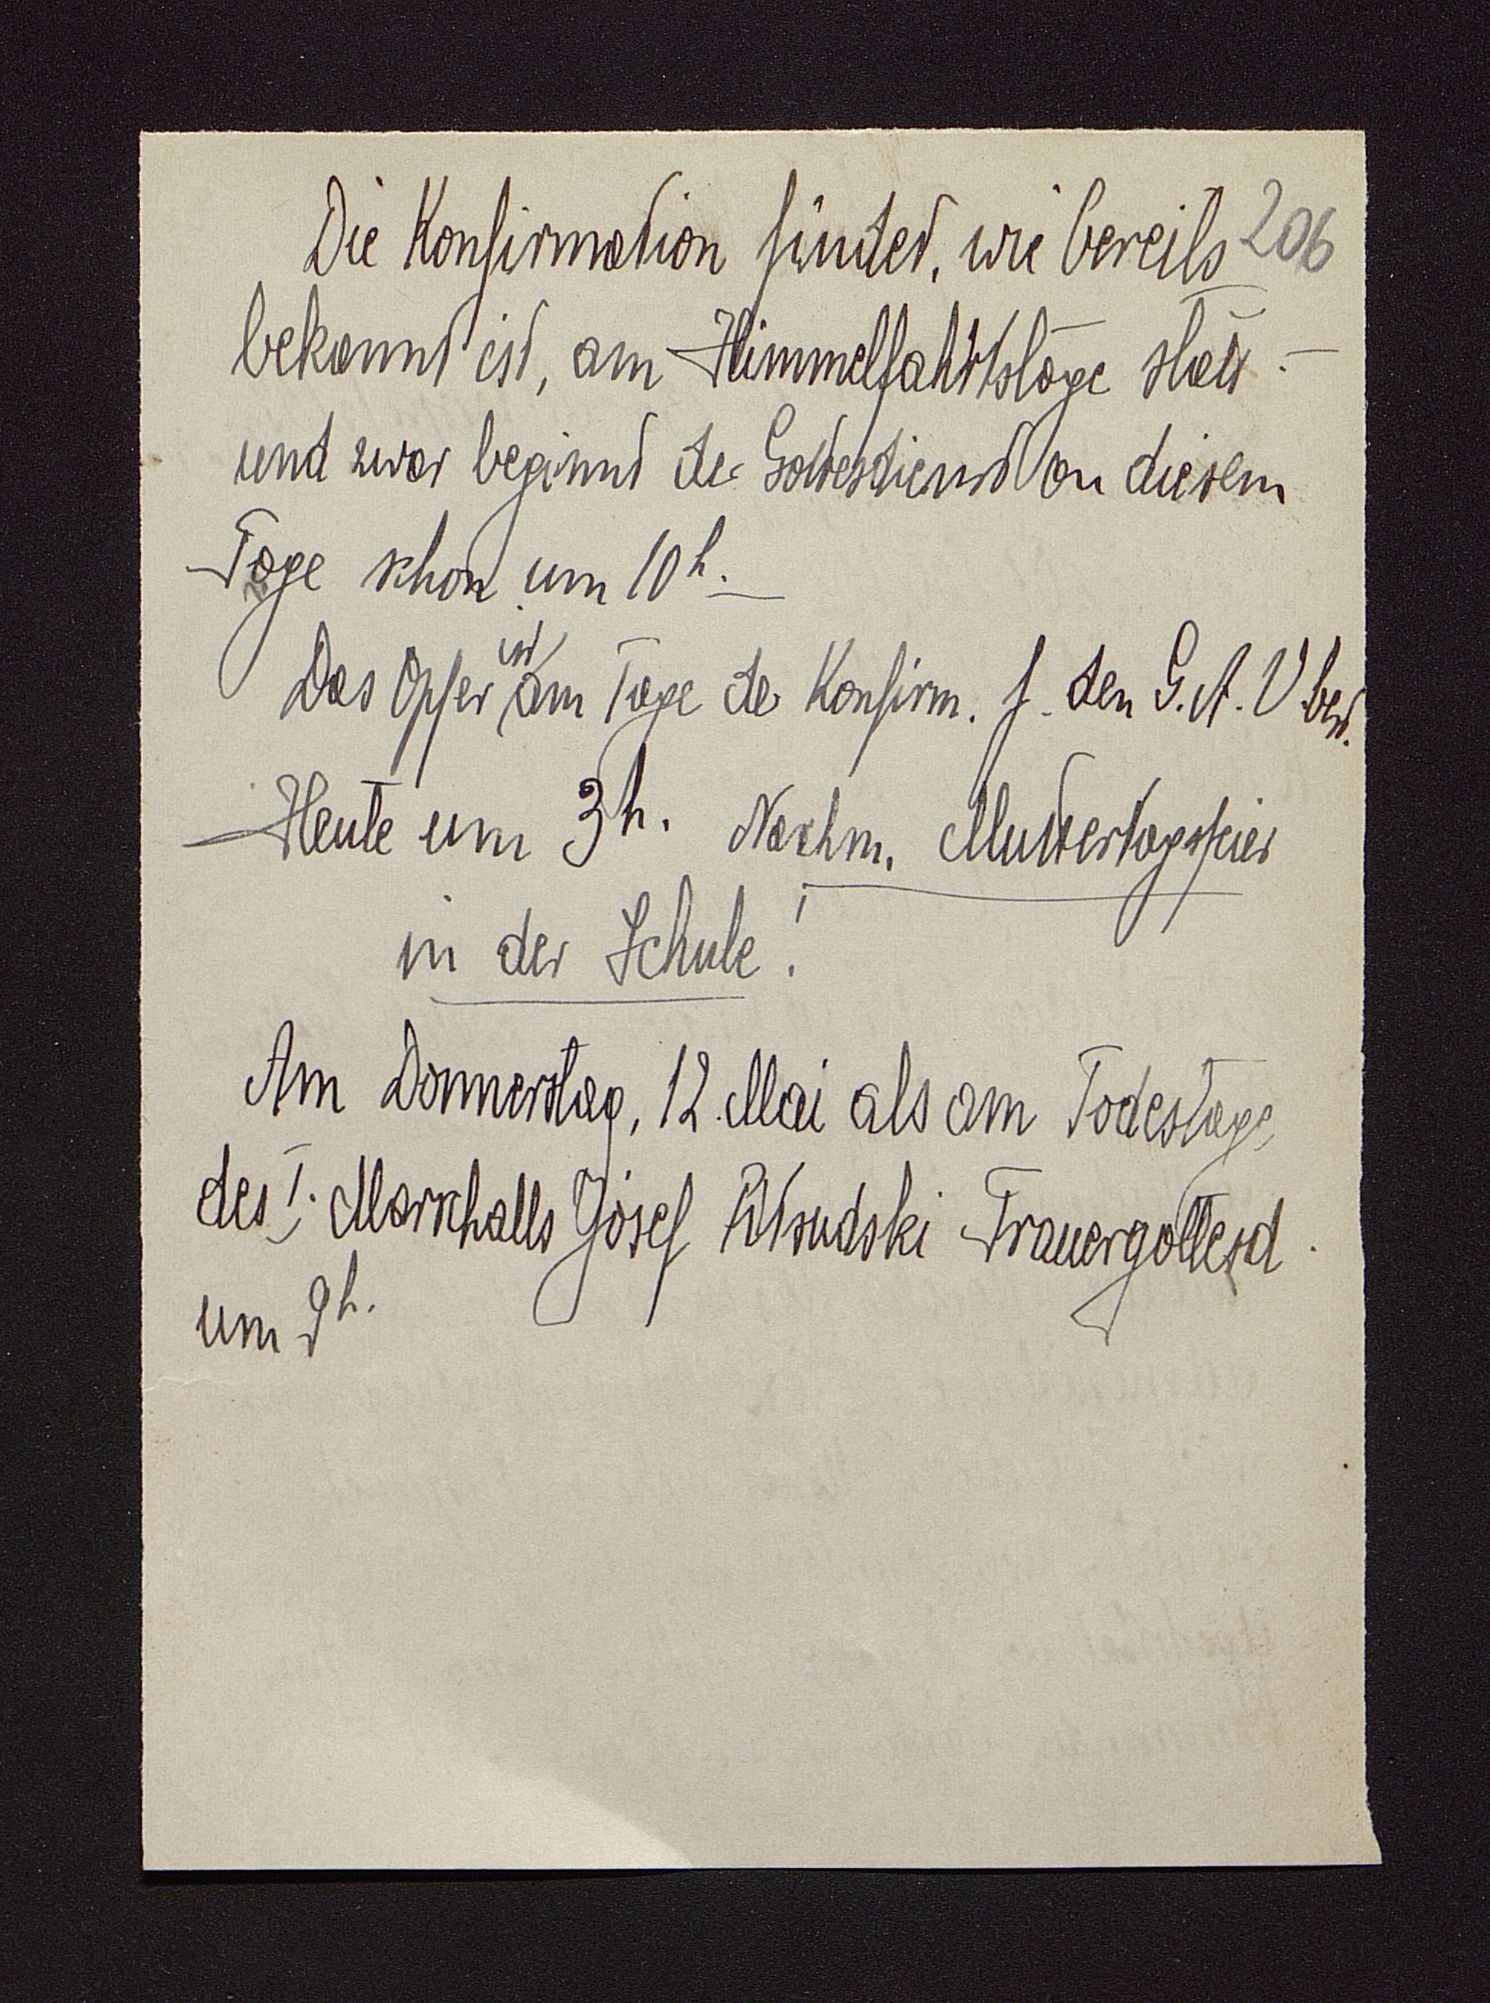 Die Konfirmation findet, wie bereits 206
bekannt ist, am Himmelfahrtstage statt -
und zwar beginnt der Gottesdienst an diesem
Tage schon um 10 h. -
Das Opfer ist am Tage der Konfirm. f. den G. A. V. best.
Heute um 3 h. Nachm. Muttertagsfeier
in der Schule!
Am Donnerstag, 12. Mai als am Todestage
des I. Marschalls Józef Piłsudski Trauergottesd.
um 9 h.